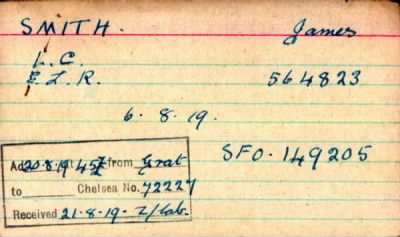 SMITH. James
L. C.
E. L. R. 564823
6. 8. 19.
SFO. 149205
20.8.19 45 from Grat
to Chelsea No. 72227
Received 21-8-19.